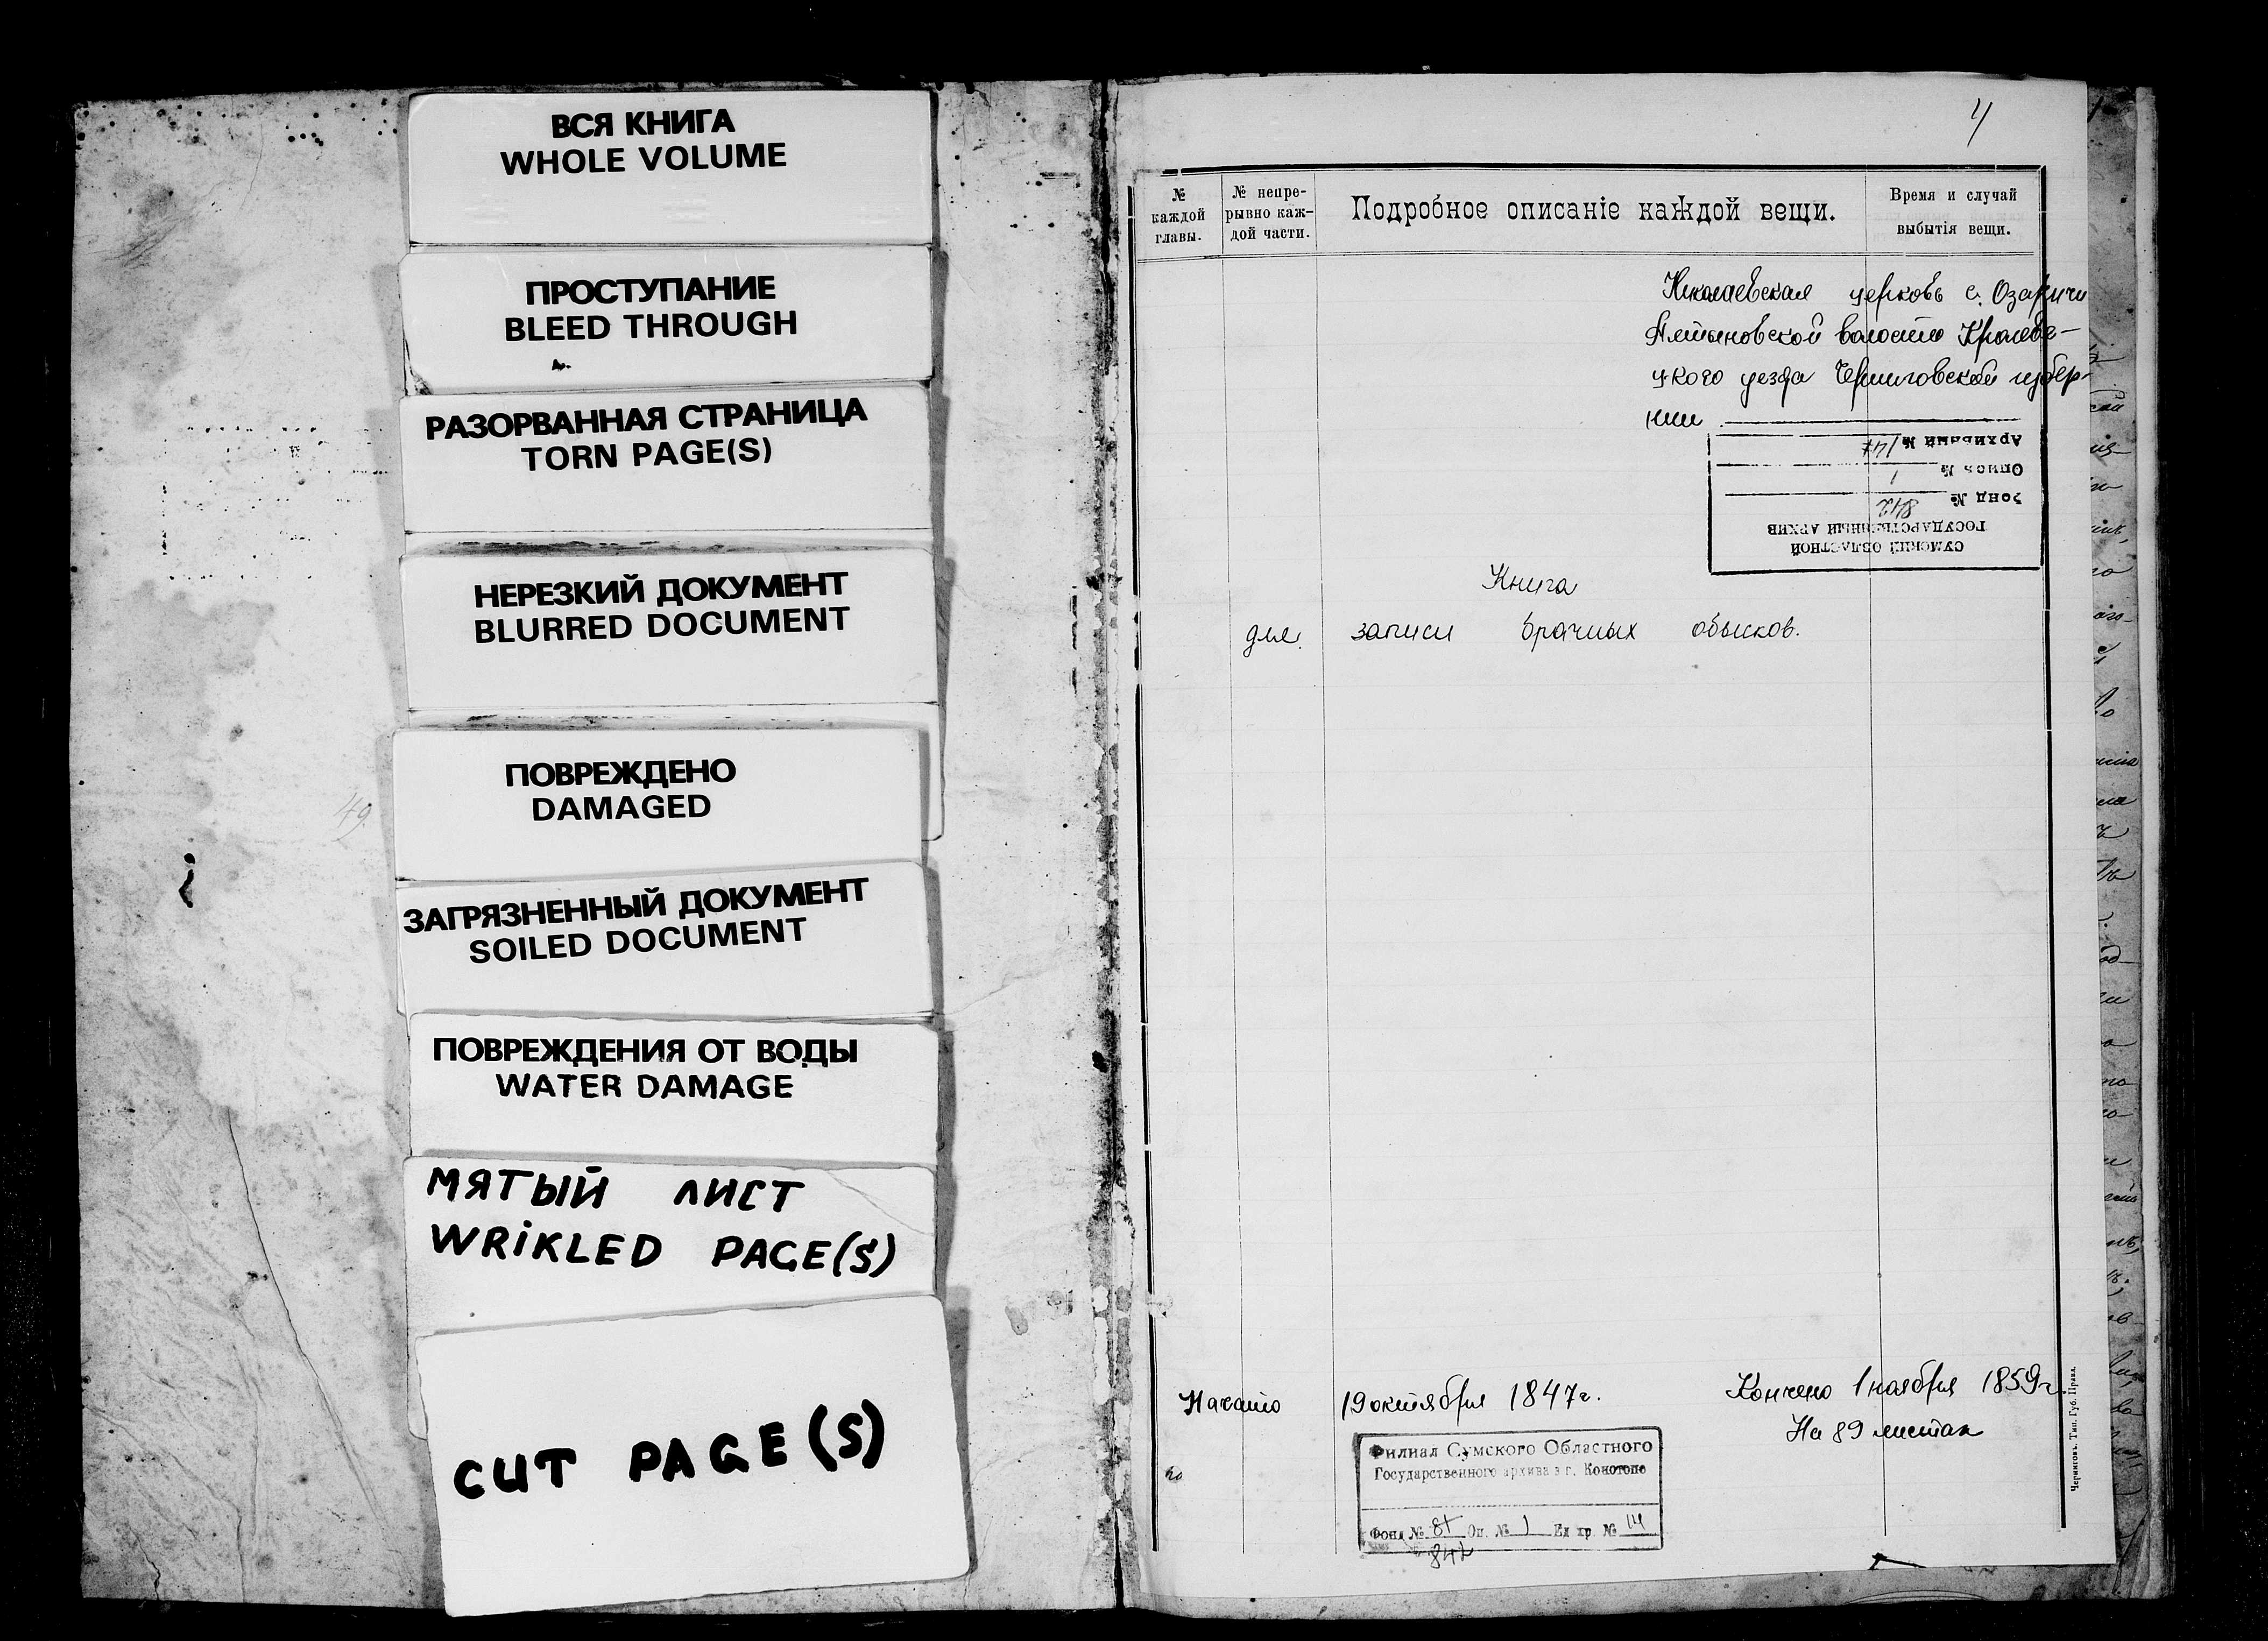 ВСЯ КНИГА
WHOLE VOLUME
ПРОСТУПАНИЕ
BLEED THROUGH
РАЗОРВАННАЯ СТРАНИЦА
TORN PAGE(S)
НЕРЕЗКИЙ ДОКУМЕНТ
BLURRED DOCUMENT
ПОВРЕЖДЕНО
DAMAGED
ЗАГРЯЗНЕННЫЙ ДОКУМЕНТ
SOILED DOCUMENT
ПОВРЕЖДЕНИЯ ОТ ВОДЫ
WATER DAMAGE
МЯТЫЙ ЛИСТ
WRiKLED PAGE(S)
CUT PAGE(S)
49
4
№ каждой главы.
№ непре-
рывно каж-
дой части.
Подробное описаніе каждой вещи.
Время и случай
выбытія вещи.
Николаевская церковь с. Озаричи
волости Кролеве-
цкого уезда Черниговской губер-
нии
СУМСКИЙ ОБЛАСТНОЙ
ГОСУДАРСТВЕННЫЙ АРХИВ
Фонд № 842
Опись № 1
Архивный № 147
Книга
для записи брачных обысков.
Начато 19 октября 1847 г.
Кончено 1 ноября 1859 г.
На 89 листах
Филиал Сумского Областного
Государственного архива в г. Конотопе
Фонд № Оп. № 1 Ед. хр. № 14
842
Черниговъ. Тип. Губ. Правл.